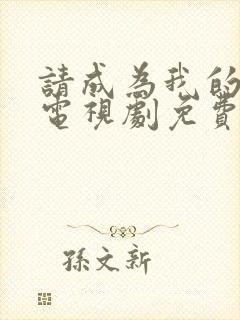 請成為我的
電視劇免費
孫文新